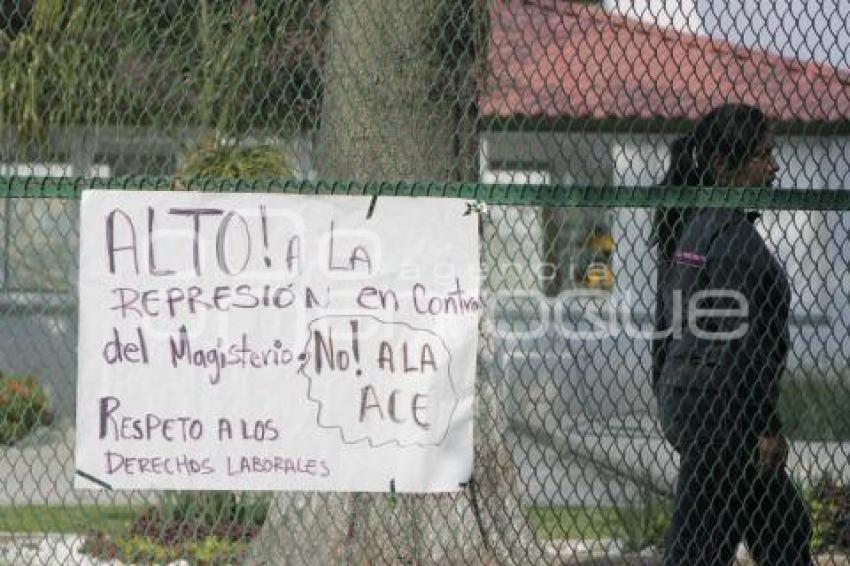 ALTO! A LA
REPRESIÓN en Contra
del Magisterio; No! A LA
ACE
RESPETO A LOS
DERECHOS LABORALES
agencia
enfoque